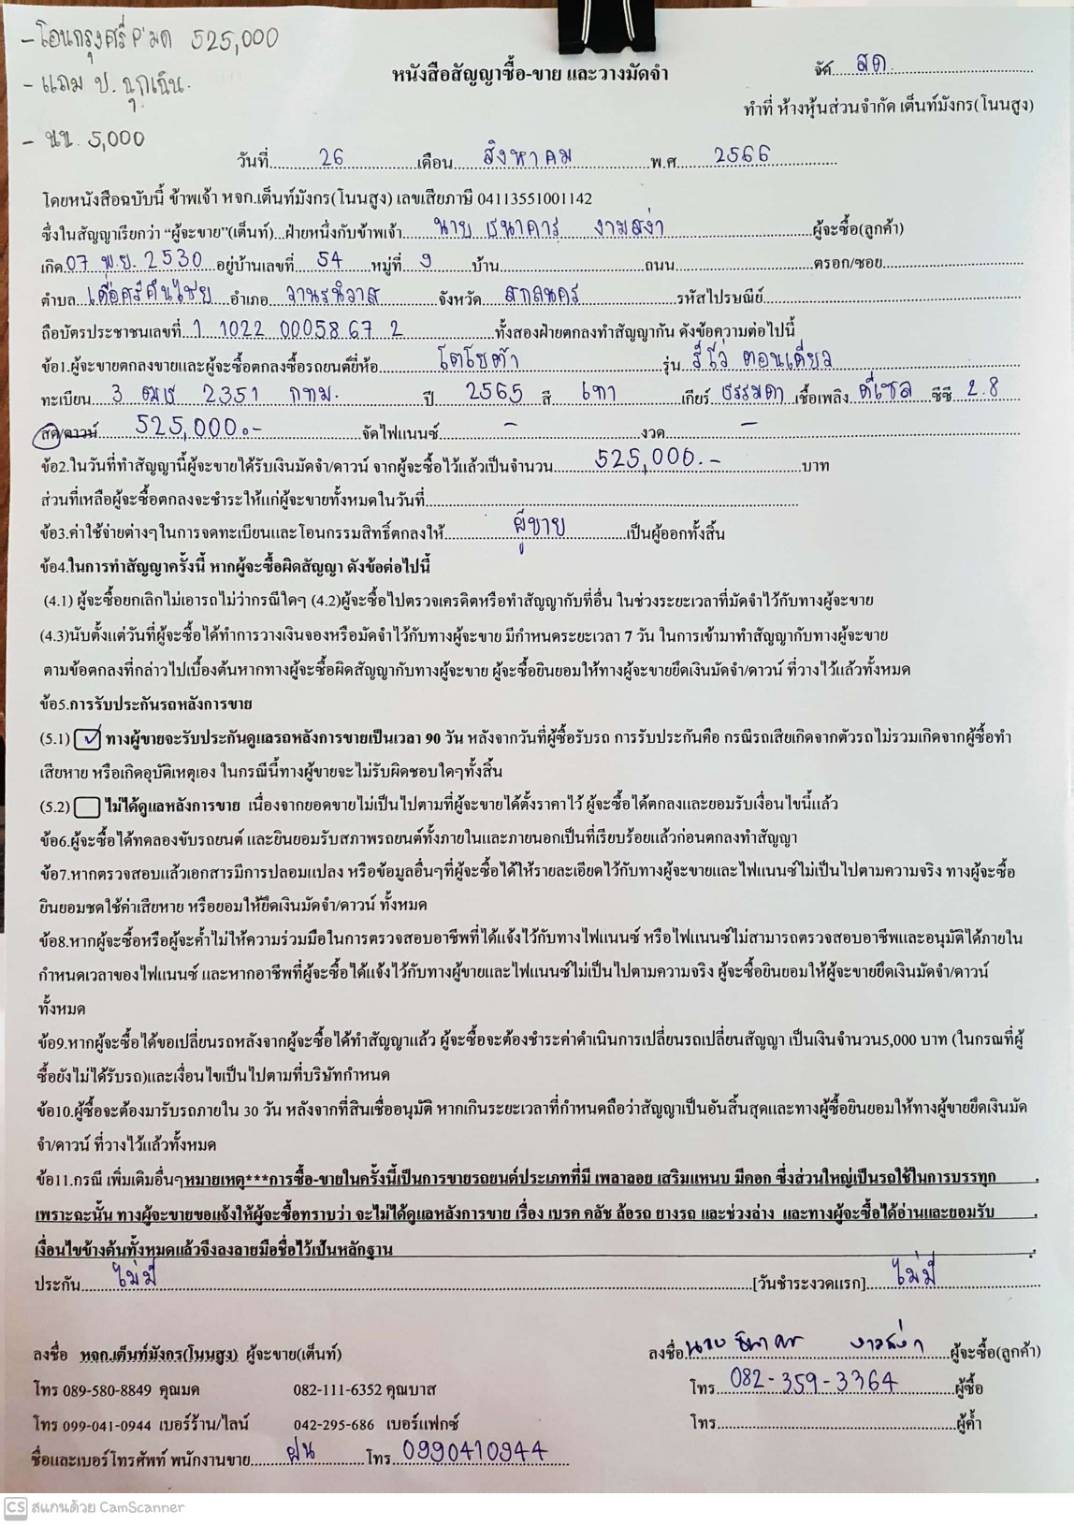 - โอนกรุงศรี P'มด 525,000
- แถม ป. ฉุกเฉิน.
- นน. 5,000
หนังสือสัญญาซื้อ-ขาย และวางมัดจำ
จัศ....สด
ทำที่ ห้างหุ้นส่วนจำกัด เต็นท์มังกร(โนนสูง)
วันที่ 26 เดือน สิงหาคม พ.ศ 2566
โดยหนังสือฉบับนี้ ข้าพเจ้า หจก.เต็นท์มังกร(โนนสูง) เลขเสียภาษี 04113551001142
ซึ่งในสัญญาเรียกว่า “ผู้จะขาย”(เต็นท์)...ฝ่ายหนึ่งกับข้าพเจ้า นาย ธนาคาร งามสง่า ผู้จะซื้อ(ลูกค้า)
เกิด 07 พ.ย. 2530 อยู่บ้านเลขที่ 54 หมู่ที่ 9 บ้าน ถนน ตรอก/ซอย
ตำบล เดื่อศรีคันไชย อำเภอ วานรนิวาส จังหวัด สกลนคร รหัสไปรษณีย์
ถือบัตรประชาชนเลขที่ 1 1022 00058 67 2 ทั้งสองฝ่ายตกลงทำสัญญากัน ดังข้อความต่อไปนี้
ข้อ1.ผู้จะขายตกลงขายและผู้จะซื้อตกลงซื้อรถยนต์ยี่ห้อ โตโยต้า รุ่น รีโว่ ตอนเดียว
ทะเบียน 3 ฒช 2351 กทม. ปี 2565 สี เทา เกียร์ ธรรมดา เชื้อเพลิง ดีเซล ซีซี 2.8
สด/ดาวน์ 525,000.- จัดไฟแนนซ์ - งวด -
ข้อ2.ในวันที่ทำสัญญานี้ผู้จะขายได้รับเงินมัดจำ/ดาวน์ จากผู้จะซื้อไว้แล้วเป็นจำนวน 525,000.- บาท
ส่วนที่เหลือผู้จะซื้อตกลงจะชำระให้แก่ผู้จะขายทั้งหมดในวันที่
ข้อ3.ค่าใช้จ่ายต่างๆในการจดทะเบียนและโอนกรรมสิทธิ์ตกลงให้ ผู้ขาย เป็นผู้ออกทั้งสิ้น
ข้อ4.ในการทำสัญญาครั้งนี้ หากผู้จะซื้อผิดสัญญา ดังข้อต่อไปนี้
(4.1) ผู้จะซื้อยกเลิกไม่เอารถไม่ว่ากรณีใดๆ (4.2)ผู้จะซื้อไปตรวจเครดิตหรือทำสัญญากับที่อื่น ในช่วงระยะเวลาที่มัดจำไว้กับทางผู้จะขาย
(4.3)นับตั้งแต่วันที่ผู้จะซื้อได้ทำการวางเงินจองหรือมัดจำไว้กับทางผู้จะขาย มีกำหนดระยะเวลา 7 วัน ในการเข้ามาทำสัญญากับทางผู้จะขาย
ตามข้อตกลงที่กล่าวไปเบื้องต้นหากทางผู้จะซื้อผิดสัญญากับทางผู้จะขาย ผู้จะซื้อยินยอมให้ทางผู้จะขายยึดเงินมัดจำ/ดาวน์ ที่วางไว้แล้วทั้งหมด
ข้อ5.การรับประกันรถหลังการขาย
(5.1) ✓ ทางผู้ขายจะรับประกันดูแลรถหลังการขายเป็นเวลา 90 วัน หลังจากวันที่ผู้ซื้อรับรถ การรับประกันคือ กรณีรถเสียเกิดจากตัวรถไม่รวมเกิดจากผู้ซื้อทำ
เสียหาย หรือเกิดอุบัติเหตุเอง ในกรณีนี้ทางผู้ขายจะไม่รับผิดชอบใดๆทั้งสิ้น
(5.2) ไม่ได้ดูแลหลังการขาย เนื่องจากยอดขายไม่เป็นไปตามที่ผู้จะขายได้ตั้งราคาไว้ ผู้จะซื้อได้ตกลงและยอมรับเงื่อนไขนี้แล้ว
ข้อ6.ผู้จะซื้อได้ทดลองขับรถยนต์ และยินยอมรับสภาพรถยนต์ทั้งภายในและภายนอกเป็นที่เรียบร้อยแล้วก่อนตกลงทำสัญญา
ข้อ7.หากตรวจสอบแล้วเอกสารมีการปลอมแปลง หรือข้อมูลอื่นๆที่ผู้จะซื้อได้ให้รายละเอียดไว้กับทางผู้จะขายและไฟแนนซ์ไม่เป็นไปตามความจริง ทางผู้จะซื้อ
ยินยอมชดใช้ค่าเสียหาย หรือยอมให้ยึดเงินมัดจำ/ดาวน์ ทั้งหมด
ข้อ8.หากผู้จะซื้อหรือผู้จะค้ำไม่ให้ความร่วมมือในการตรวจสอบอาชีพที่ได้แจ้งไว้กับทางไฟแนนซ์ หรือไฟแนนซ์ไม่สามารถตรวจสอบอาชีพและอนุมัติได้ภายใน
กำหนดเวลาของไฟแนนซ์ และหากอาชีพที่ผู้จะซื้อได้แจ้งไว้กับทางผู้ขายและไฟแนนซ์ไม่เป็นไปตามความจริง ผู้จะซื้อยินยอมให้ผู้จะขายยึดเงินมัดจำ/ดาวน์
ทั้งหมด
ข้อ9.หากผู้จะซื้อได้ขอเปลี่ยนรถหลังจากผู้จะซื้อได้ทำสัญญาแล้ว ผู้จะซื้อจะต้องชำระค่าดำเนินการเปลี่ยนรถเปลี่ยนสัญญา เป็นเงินจำนวน5,000 บาท (ในกรณที่ผู้
ซื้อยังไม่ได้รับรถ)และเงื่อนไขเป็นไปตามที่บริษัทกำหนด
ข้อ10.ผู้ซื้อจะต้องมารับรถภายใน 30 วัน หลังจากที่สินเชื่ออนุมัติ หากเกินระยะเวลาที่กำหนดถือว่าสัญญาเป็นอันสิ้นสุดและทางผู้ซื้อยินยอมให้ทางผู้ขายยึดเงินมัด
จำ/ดาวน์ ที่วางไว้แล้วทั้งหมด
ข้อ11.กรณี เพิ่มเติมอื่นๆหมายเหตุ***การซื้อ-ขายในครั้งนี้เป็นการขายรถยนต์ประเภทที่มี เพลาลอย เสริมแหนบ มีคอก ซึ่งส่วนใหญ่เป็นรถใช้ในการบรรทุก
เพราะฉะนั้น ทางผู้จะขายขอแจ้งให้ผู้จะซื้อทราบว่า จะไม่ได้ดูแลหลังการขาย เรื่อง เบรค คลัช ล้อรถ ยางรถ และช่วงล่าง และทางผู้จะซื้อได้อ่านและยอมรับ
เงื่อนไขข้างต้นทั้งหมดแล้วจึงลงลายมือชื่อไว้เป็นหลักฐาน
ประกัน ไม่มี [วันชำระงวดแรก] ไม่มี
ลงชื่อ หจก.เต็นท์มังกร(โนนสูง) ผู้จะขาย(เต็นท์) ลงชื่อ นาย ธนาคาร งามสง่า ผู้จะซื้อ(ลูกค้า)
โทร 089-580-8849 คุณมด 082-111-6352 คุณบาส โทร 082-359-3364 ผู้ซื้อ
โทร 099-041-0944 เบอร์ร้าน/ไลน์ 042-295-686 เบอร์แฟกซ์ โทร ผู้ค้ำ
ชื่อและเบอร์โทรศัพท์ พนักงานขาย ฝน โทร 0990410944
CS สแกนด้วย CamScanner